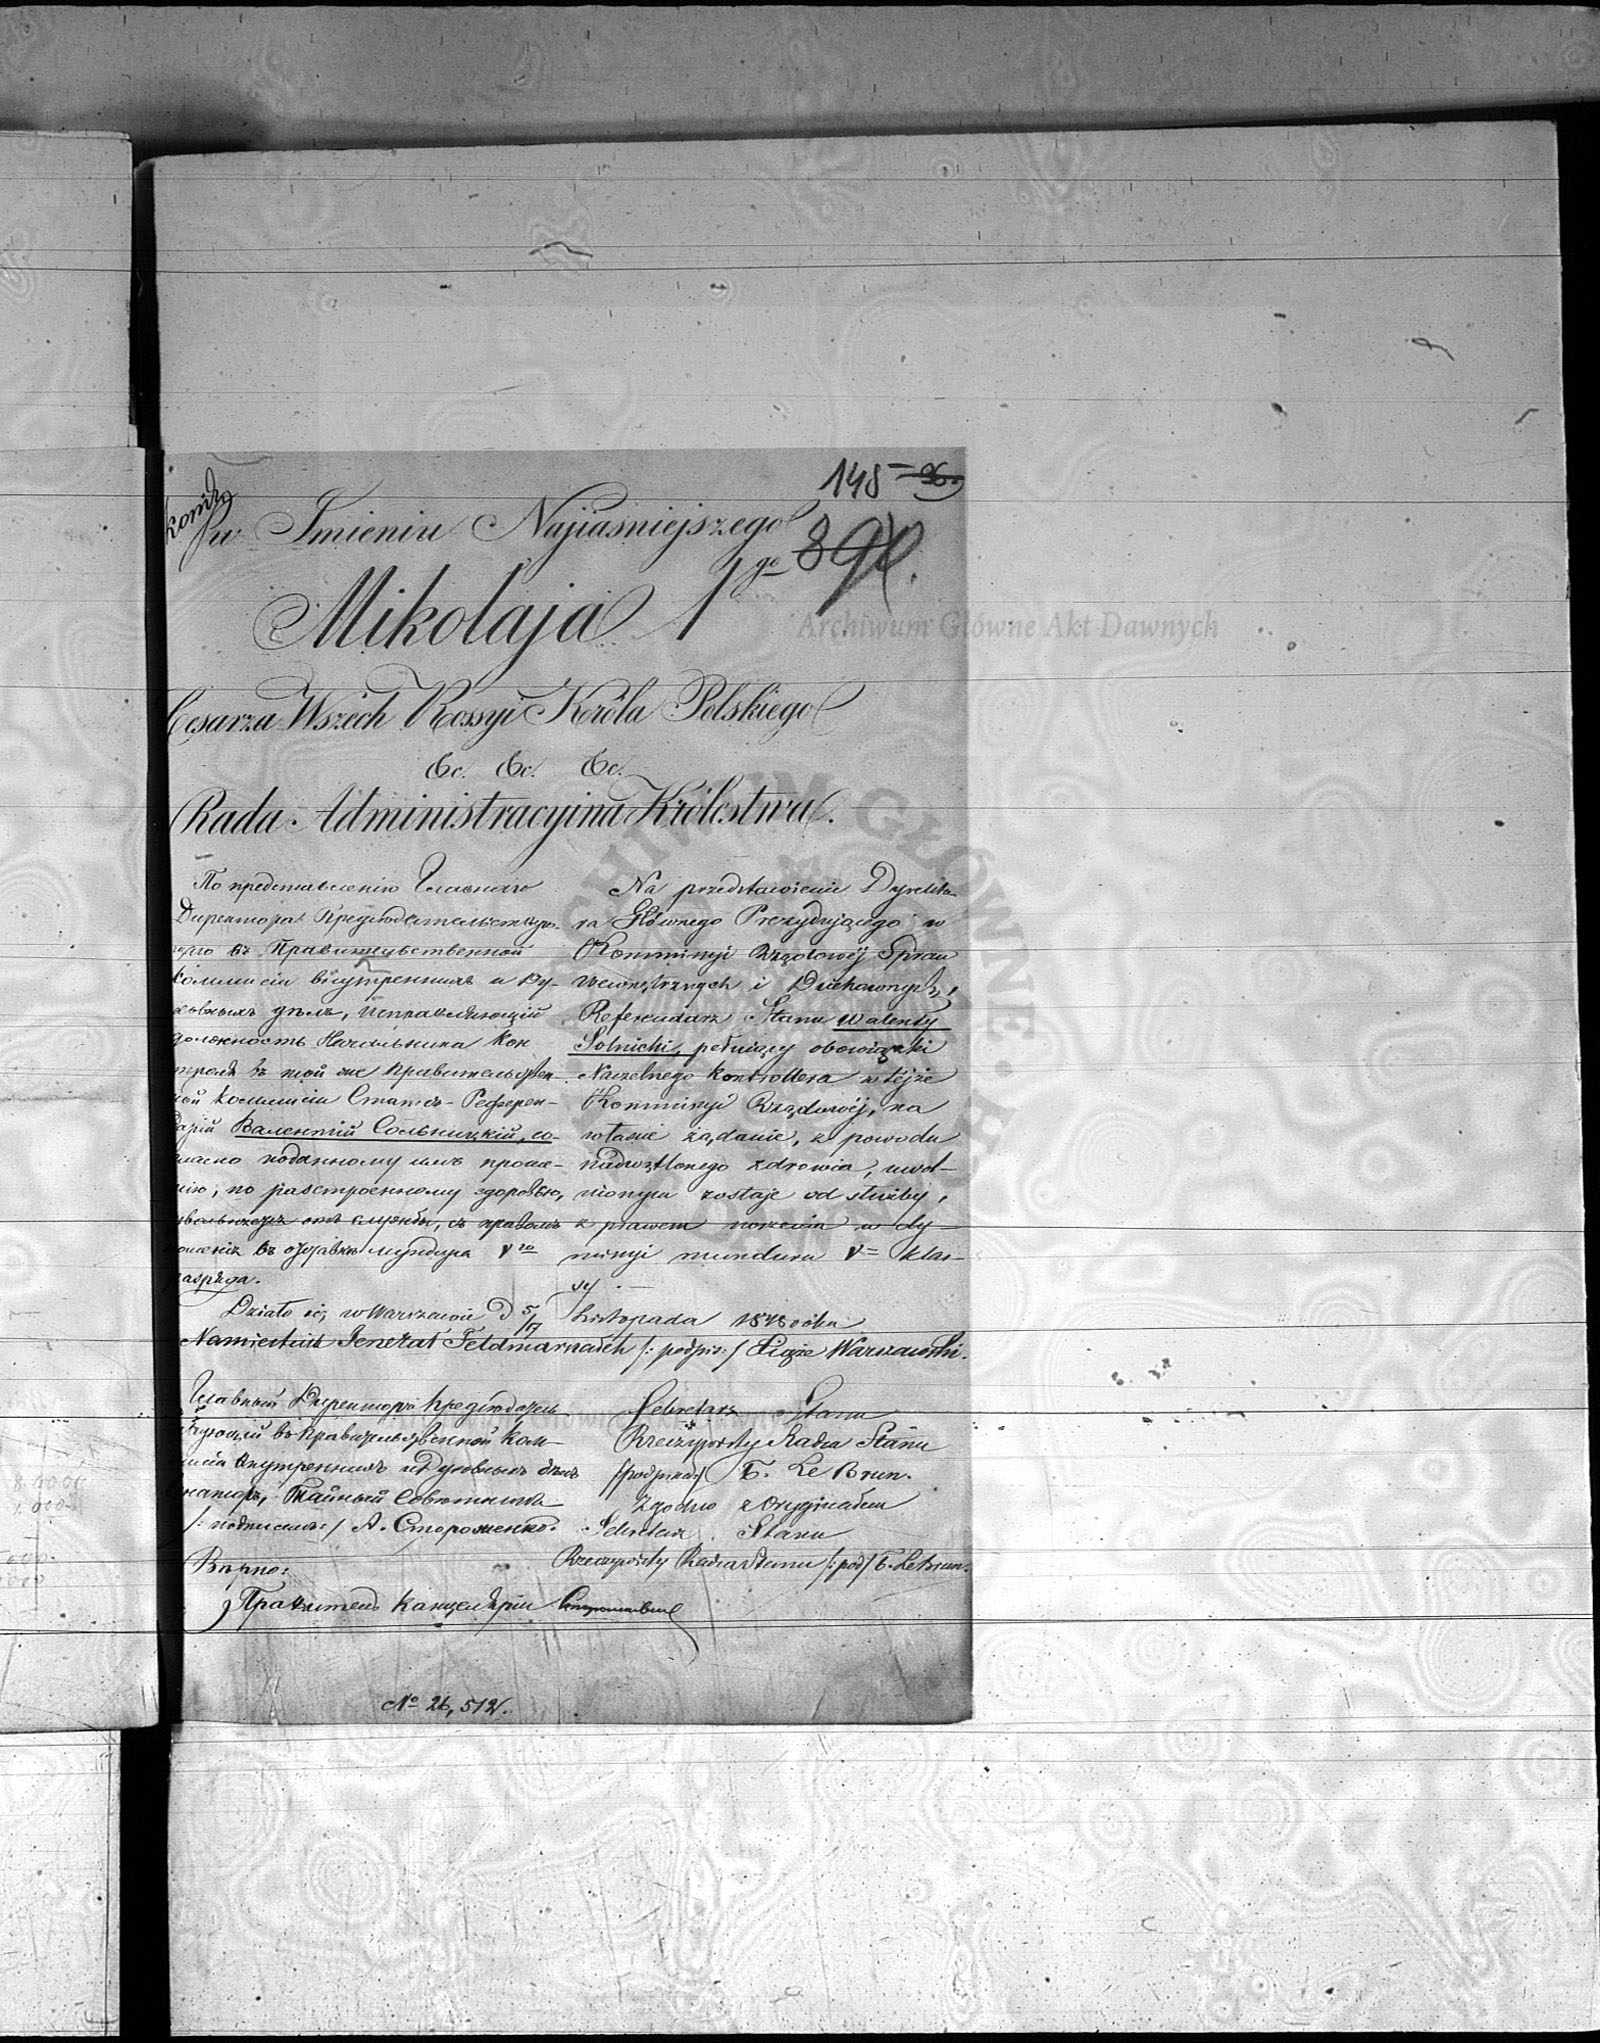 148
w Imieniu Najiaśniejszego
Mikołaja 1go
Cesarza Wszech Rossyi Króla Polskiego
&c. &c. &c.
Rada Administracyina Królestwa.
По представленію Главнаго
Директора Предсѣдательствую-
Правительственной
внутреннихъ и Ду-
дѣлъ, Исправляющій
должность Начальника Кон
въ той же Правительствен-
Коммисіи Статсъ-Референ-
Валентій Сольницкій, со-
поданному имъ проше-
нію, по разстроенному здоровью,
отъ службы, съ правомъ
въ отставкѣ мундира Vго
разряда.
Na przedstawienie Dyrekto-
ra Głównego Prezydującego w
Kommissyi Rządowéj Spraw
Wewnętrznych i Duchownych,
Referendarz Stanu Walenty
Solnicki, pełniący obowiązki
Naczelnego Kontrollera w téjże
Kommissyi Rządowéj, na
własne żądanie, z powodu
nadwątlonego zdrowia, uwol-
nionym zostaje od służby,
z prawem noszenia w dy-
missyi munduru V klas-
sy.
Działo się w Warszawie d 5/17 Listopada 1848 roku
Namiestnik Jenerał Feldmarszałek /: podpis: / Xiąże Warszawski.
Главный Директоръ Предсѣдатель
ствующій въ Правительственной Ком-
Внутреннихъ и Духовныхъ дѣлъ
Тайный Совѣтникъ
/: подписалъ: / А. Стороженко.
Вѣрно:
Правитель Канцеляріи
Sekretarz Stanu
Rzeczywisty Radca Stanu
T. Le Brun.
Zgodno z Oryginałem
Sekretarz Stanu
Rzeczywisty Radca Stanu /: pod/ T. Le Brun.
№ 26,512.
Archiwum Główne Akt Dawnych